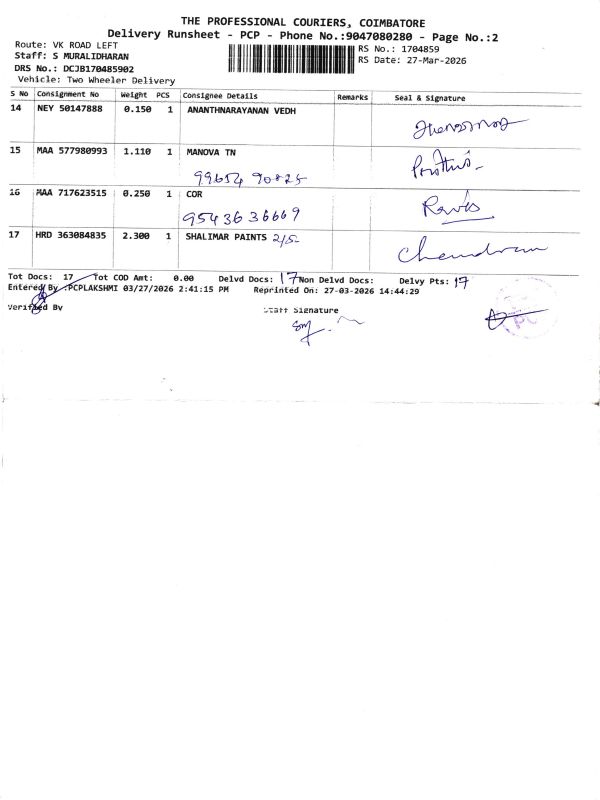 THE PROFESSIONAL COURIERS, COIMBATORE
Delivery Runsheet - PCP - Phone No.:9047080280 - Page No.:2
Route: VK ROAD LEFT
RS No.: 1704859
Staff: S MURALIDHARAN
RS Date: 27-Mar-2026
DRS No.: DCJB170485902
Vehicle: Two Wheeler Delivery
S No Consignment No Weight PCS Consignee Details Remarks Seal & Signature
14 NEY 50147888 0.150 1 ANANTHNARAYANAN VEDH
15 MAA 577980993 1.110 1 MANOVA TN
99654 90825
16 MAA 717623515 0.250 1 COR
Ravi
9543636669
17 HRD 363084835 2.300 1 SHALIMAR PAINTS
Chandram
Tot Docs: 17 Tot COD Amt: 0.00 Delvd Docs: 17 Non Delvd Docs: Delvy Pts: 17
Entered By :PCPLAKSHMI 03/27/2026 2:41:15 PM Reprinted On: 27-03-2026 14:44:29
Verified By
Staff Signature